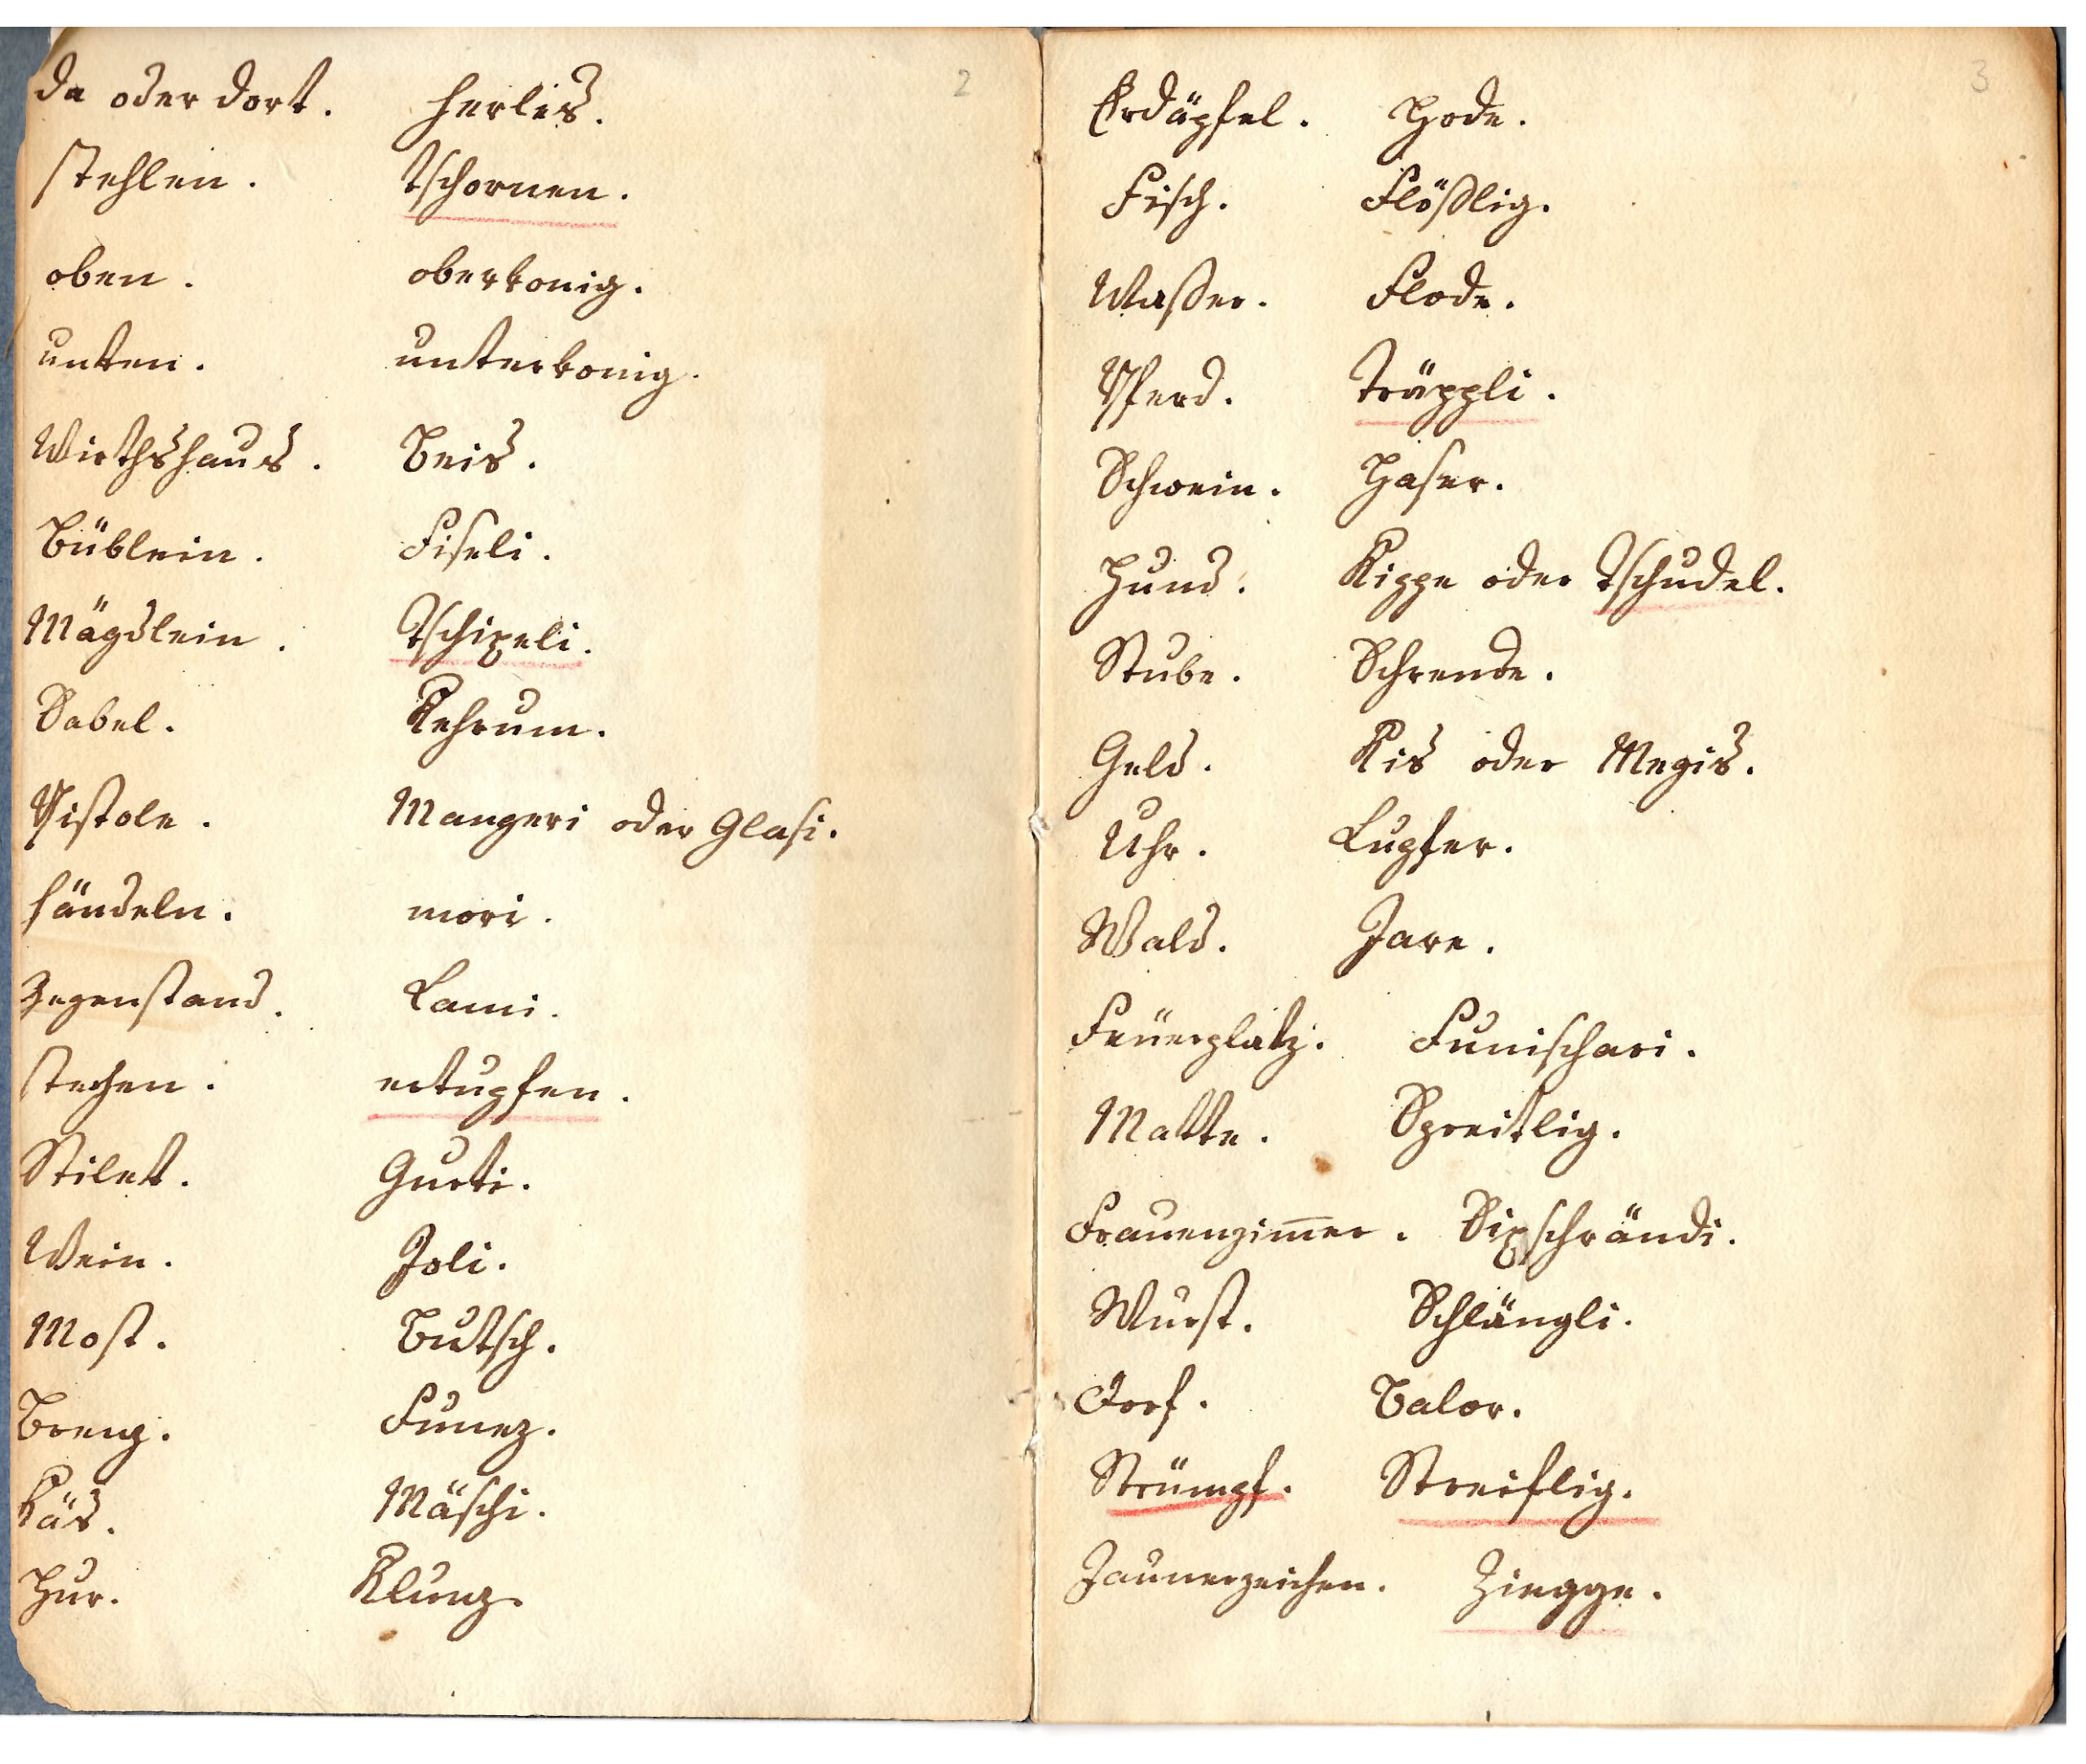 2
da oder dort. herlis.
stehlen. tschornen.
oben. oberkonig.
unten. unterkonig.
Wirthshaus. Beis.
Büblein. Fiseli.
Mägdlein. Tschipeli.
Sabel. Kehrum.
Pistole. Mangeri oder Glasi.
händeln. mori.
Gegenstand. Lami.
stechen. ertupfen.
Stilet. Gurti.
Wein. Joli.
Most. Butsch.
Brenz. Funez.
Käs. Mäschi.
Hur. Klunz.
3
Erdäpfel. Hode.
Fisch. Flößlig.
Waßer. Flode.
Pferd. Träppli.
Schwein. Haser.
Hund. Kippe oder Tschudel.
Stube. Schrende.
Geld. Kis oder Megis.
Uhr. Lupfer.
Wald. Jare.
Feüerplatz. Funischari.
Matte. Spreitlig.
Frauenzim̅er. Sipschrändi.
Wurst. Schlängli.
Dorf. Balor.
Strümpf. Streiflig.
Jaunerzeichen. Zingge.